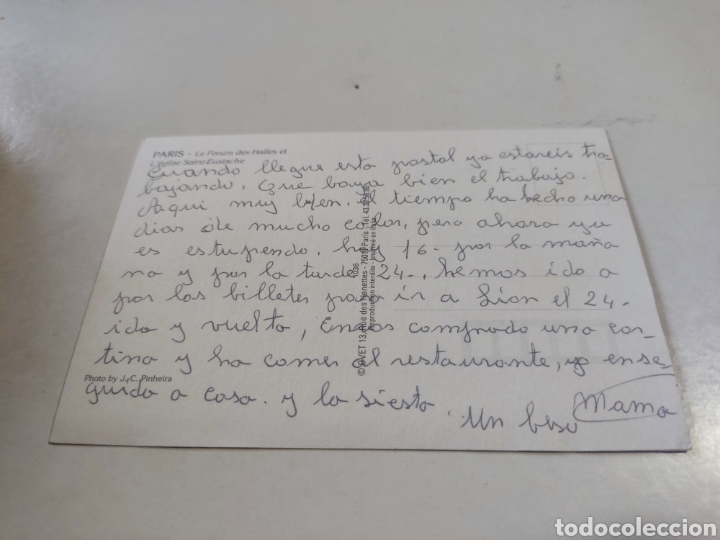 PARIS - Le Forum des Halles et
L'église Saint-Eustache
Cuando llegue esta postal ya estareis tra
bajando, que baya bien el trabajo.
Aqui muy bien. El tiempo ha hecho unos
dias de mucho calor, pero ahora ya
es estupendo, hoy 16- por la maña
na y por la tarde 24-, hemos ido a
por los billetes para ir a Lion el 24-
ida y vuelta, emos comprado una cor_
tina y ha comer al restaurante, yo ense_
guida a casa. y la siesta.
Un beso Mama
Photo by J.-C. Pinheira
13, rue des - 75019 Paris - Tél.
Reproduction interdite -
todocoleccion